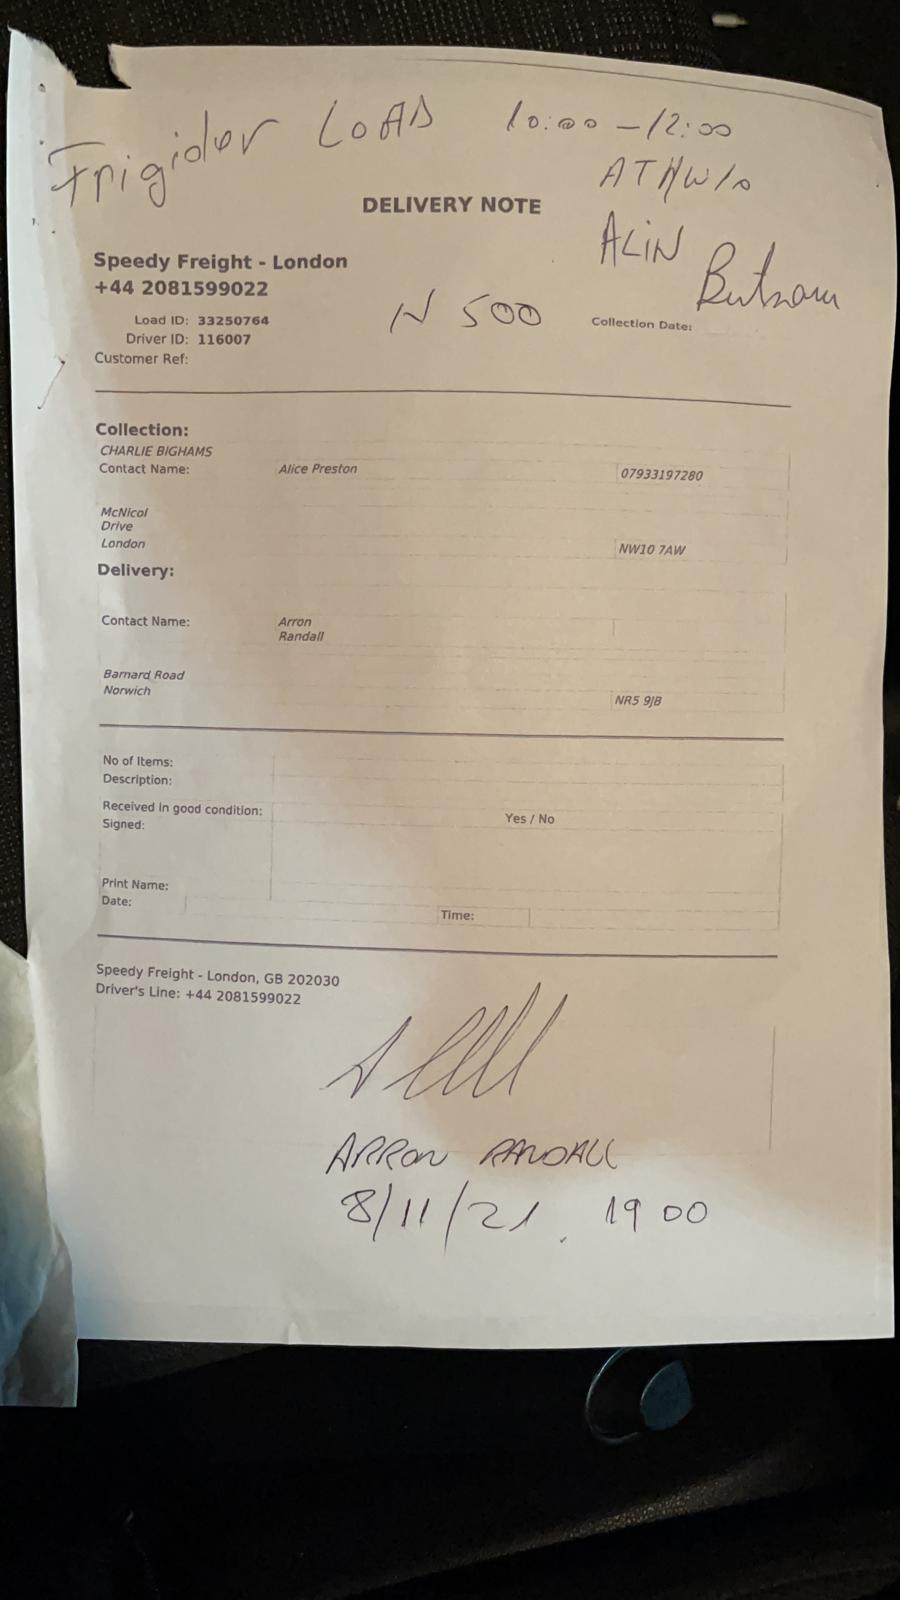 Frigider LOAD 10:00 - 12:00
ATH/W/o
DELIVERY NOTE
ALIN
Speedy Freight - London
+44 2081599022
N 500
Collection Date:
Load ID: 33250764
Driver ID: 116007
Customer Ref:
Collection:
CHARLIE BIGHAMS
Contact Name: Alice Preston 07933197280
McNicol
Drive
London NW10 7AW
Delivery:
Contact Name: Arron
Randall
Barnard Road
Norwich NR5 9JB
No of Items:
Description:
Received in good condition: Yes / No
Signed:
Print Name:
Date: Time:
Speedy Freight - London, GB 202030
Driver's Line: +44 2081599022
ARRON RANDALL
8/11/21. 19 00